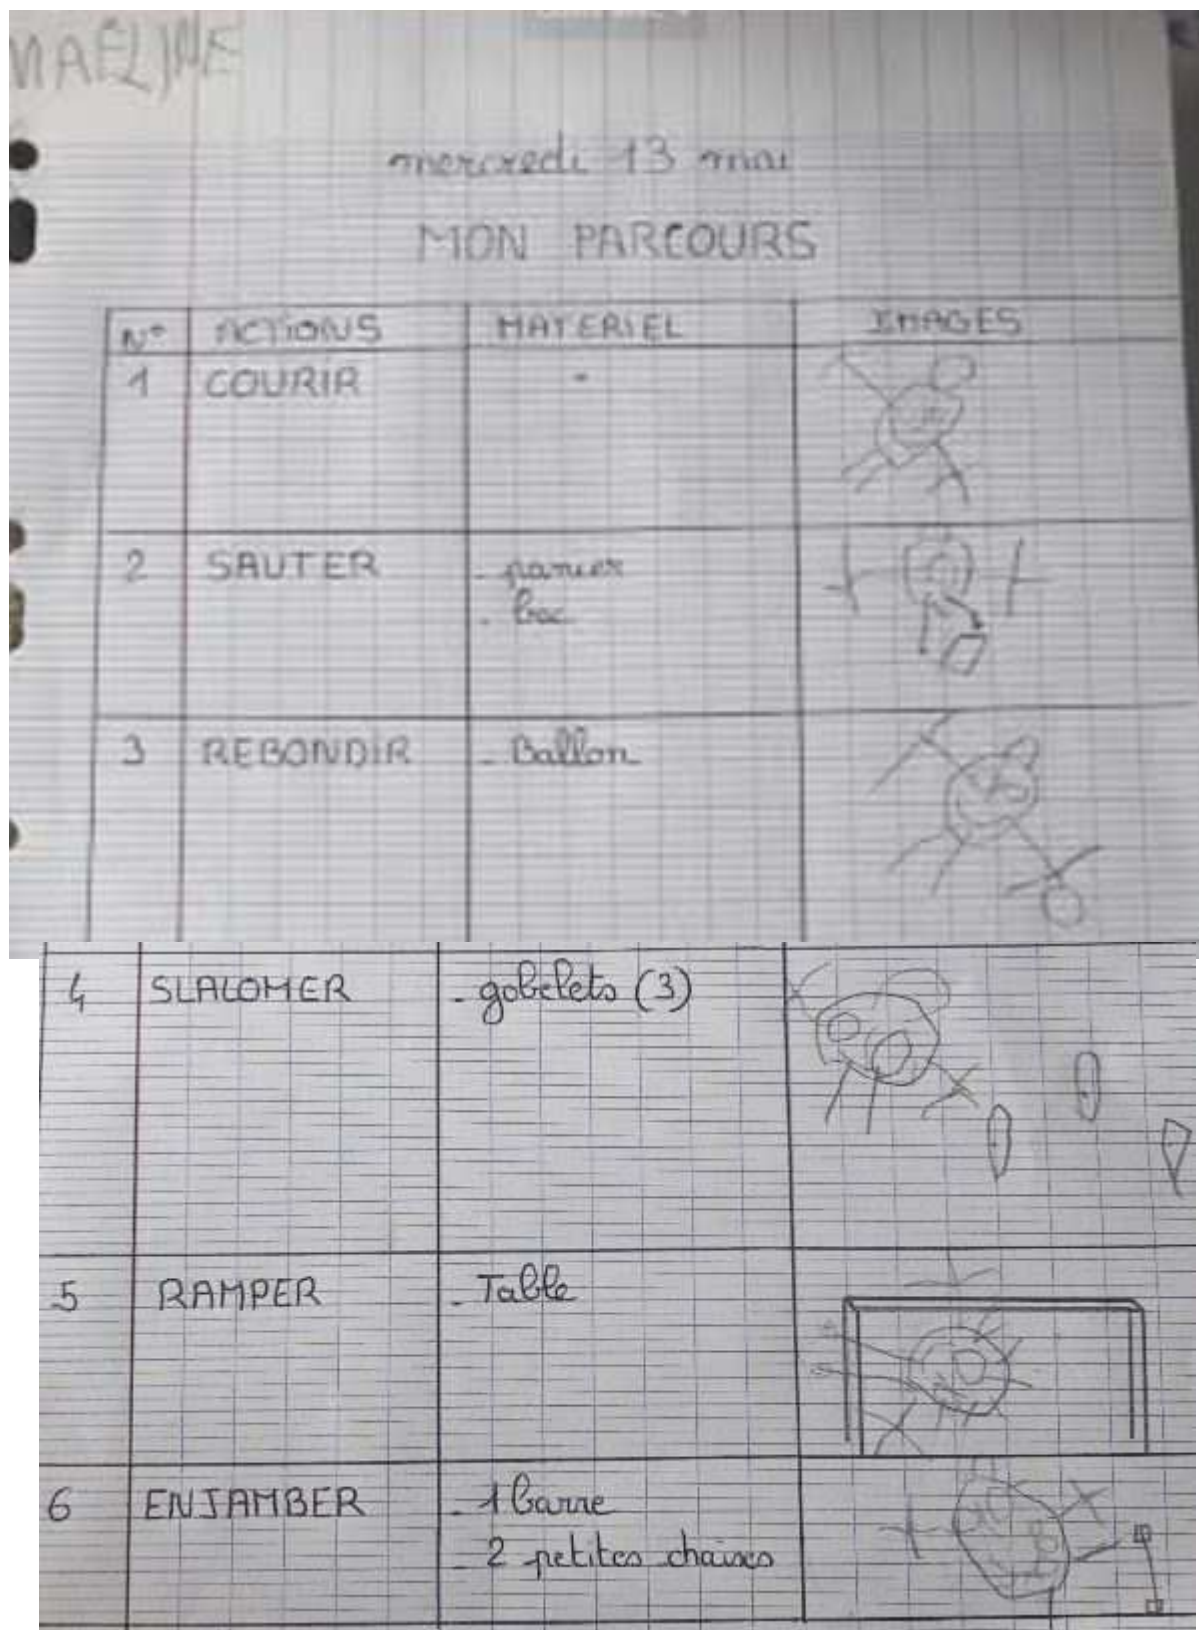 MAËLINE
mercredi 13 mai
MON PARCOURS
N° ACTIONS MATERIEL IMAGES
1 COURIR -
2 SAUTER - panier
- bac
3 REBONDIR - Ballon
4 SLALOMER - gobelets (3)
5 RAMPER - Table
6 ENJAMBER - 1 barre
- 2 petites chaises